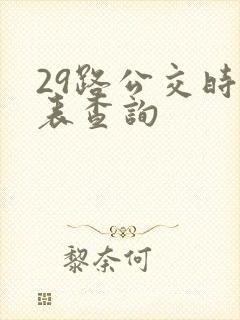 29路公交时
表查詢
黎奈何